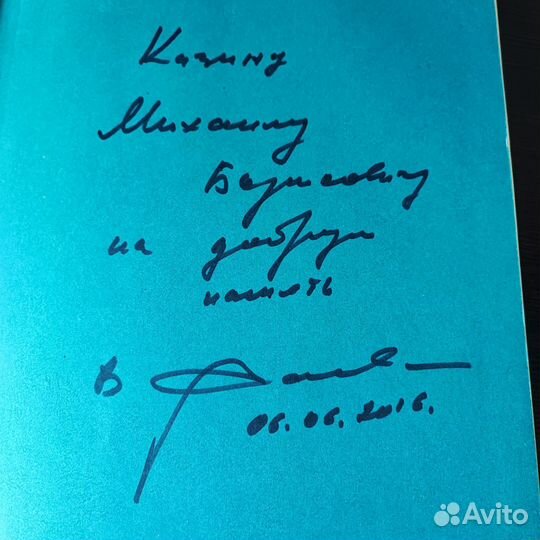 Казину
Михаилу
Борисовичу
на добрую
память
В
06.06.2016.
Avito